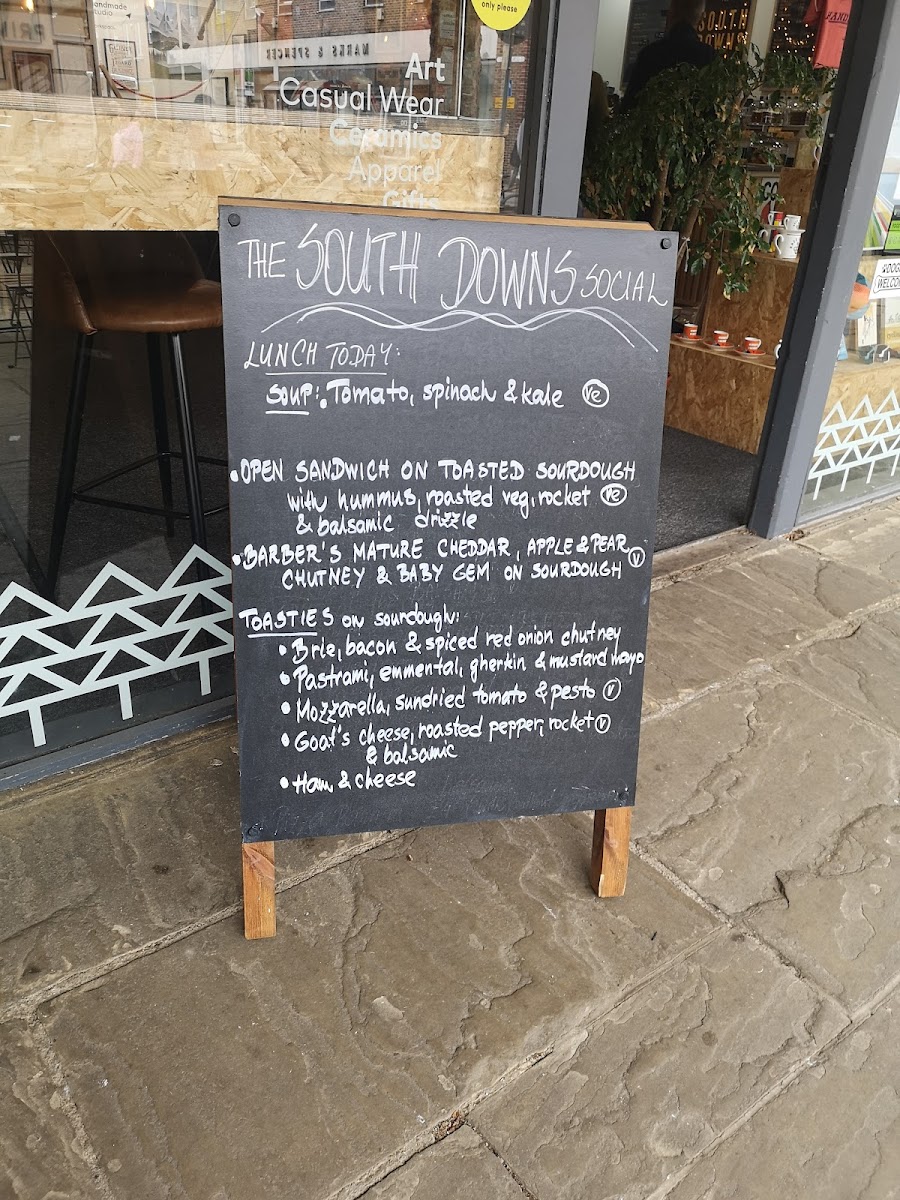 only please
Art
Casual Wear
Ceramics
Apparel
Gifts
MARKS & SPENCER
SOUTH
DOWNS
DOGS
WELCOME
THE SOUTH DOWNS SOCIAL
LUNCH TODAY:
SOUP: Tomato, spinach & kale ve
• OPEN SANDWICH ON TOASTED SOURDOUGH
with hummus, roasted veg, rocket ve
& balsamic drizzle
• BARBER'S MATURE CHEDDAR, APPLE & PEAR
CHUTNEY & BABY GEM ON SOURDOUGH v
TOASTIES on sourdough:
• Brie, bacon & spiced red onion chutney
• Pastrami, emmental, gherkin & mustard mayo
• Mozzarella, sundried tomato & pesto v
• Goat's cheese, roasted pepper, rocket v
& balsamic
• Ham & cheese